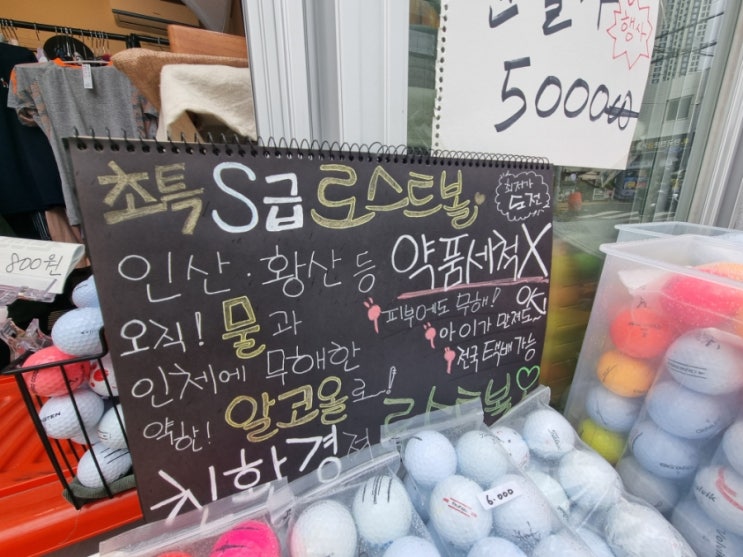 행사
5000
800원
초특 S급 로스트볼
최저가
도전
인산·황산 등 약품세척X
오직! 물과
피부에도 무해!
아이가 만져도 OK!
전국 택배 가능
인체에 무해한
약한! 알코올로!
친환경적 로스트볼
6.000